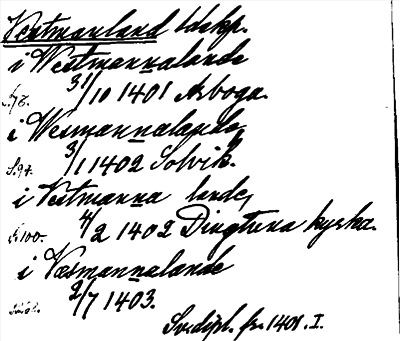 Vestmanland ldskp.
i Westmannalande
S. 78. 31/10 1401 Arboga.
i Wesmannalande,
S. 94. 3/1 1402 Solvik.
i Vestmanna lande,
S. 100. 4/2 1402 Dingtuna kyrka.
i Væsmannalande
2/7 1403.
Sv. dipl. fr. 1401. I.